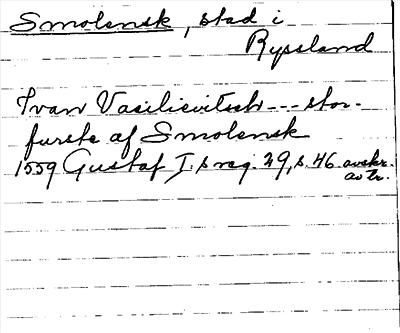 Smolensk, stad i
Ryssland
Ivan Vasilievitsch --- stor-
furste af Smolensk
1559 Gustaf I.s reg. 29, s. 46 avskr.
av tr.